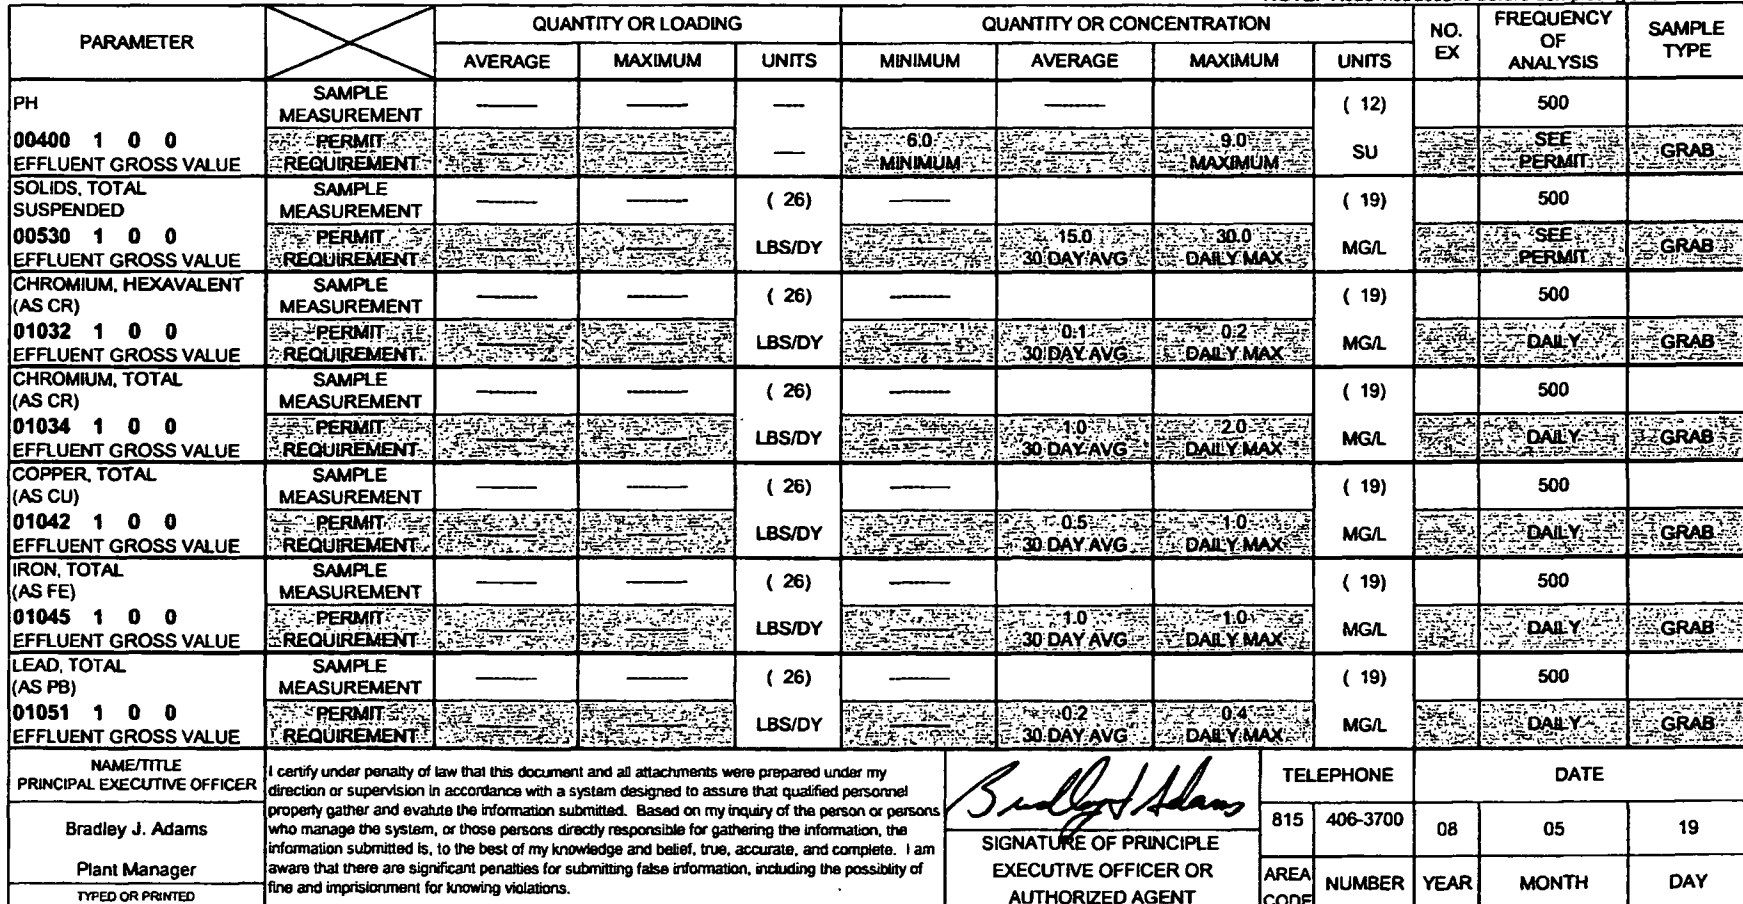 PARAMETER QUANTITY OR LOADING QUANTITY OR CONCENTRATION NO. EX FREQUENCY OF ANALYSIS SAMPLE TYPE
AVERAGE MAXIMUM UNITS MINIMUM AVERAGE MAXIMUM UNITS
PH SAMPLE MEASUREMENT ( 12) 500
00400 1 0 0 EFFLUENT GROSS VALUE PERMIT REQUIREMENT 6.0 MINIMUM 9.0 MAXIMUM SU SEE PERMIT GRAB
SOLIDS, TOTAL SUSPENDED SAMPLE MEASUREMENT ( 26) ( 19) 500
00530 1 0 0 EFFLUENT GROSS VALUE PERMIT REQUIREMENT LBS/DY 15.0 30 DAY AVG 30.0 DAILY MAX MG/L SEE PERMIT GRAB
CHROMIUM, HEXAVALENT (AS CR) SAMPLE MEASUREMENT ( 26) ( 19) 500
01032 1 0 0 EFFLUENT GROSS VALUE PERMIT REQUIREMENT LBS/DY 0.1 30 DAY AVG 0.2 DAILY MAX MG/L DAILY GRAB
CHROMIUM, TOTAL (AS CR) SAMPLE MEASUREMENT ( 26) ( 19) 500
01034 1 0 0 EFFLUENT GROSS VALUE PERMIT REQUIREMENT LBS/DY 1.0 30 DAY AVG 2.0 DAILY MAX MG/L DAILY GRAB
COPPER, TOTAL (AS CU) SAMPLE MEASUREMENT ( 26) ( 19) 500
01042 1 0 0 EFFLUENT GROSS VALUE PERMIT REQUIREMENT LBS/DY 0.5 30 DAY AVG 1.0 DAILY MAX MG/L DAILY GRAB
IRON, TOTAL (AS FE) SAMPLE MEASUREMENT ( 26) ( 19) 500
01045 1 0 0 EFFLUENT GROSS VALUE PERMIT REQUIREMENT LBS/DY 1.0 30 DAY AVG 1.0 DAILY MAX MG/L DAILY GRAB
LEAD, TOTAL (AS PB) SAMPLE MEASUREMENT ( 26) ( 19) 500
01051 1 0 0 EFFLUENT GROSS VALUE PERMIT REQUIREMENT LBS/DY 0.2 30 DAY AVG 0.4 DAILY MAX MG/L DAILY GRAB
NAME/TITLE
PRINCIPAL EXECUTIVE OFFICER
Bradley J. Adams
Plant Manager
TYPED OR PRINTED
I certify under penalty of law that this document and all attachments were prepared under my
direction or supervision in accordance with a system designed to assure that qualified personnel
properly gather and evalute the information submitted. Based on my inquiry of the person or persons
who manage the system, or those persons directly responsible for gathering the information, the
information submitted is, to the best of my knowledge and belief, true, accurate, and complete. I am
aware that there are significant penalties for submitting false information, including the possiblity of
fine and imprisionment for knowing violations.
Bradley J Adams
SIGNATURE OF PRINCIPLE
EXECUTIVE OFFICER OR
AUTHORIZED AGENT
TELEPHONE DATE
815 406-3700 08 05 19
AREA CODE NUMBER YEAR MONTH DAY